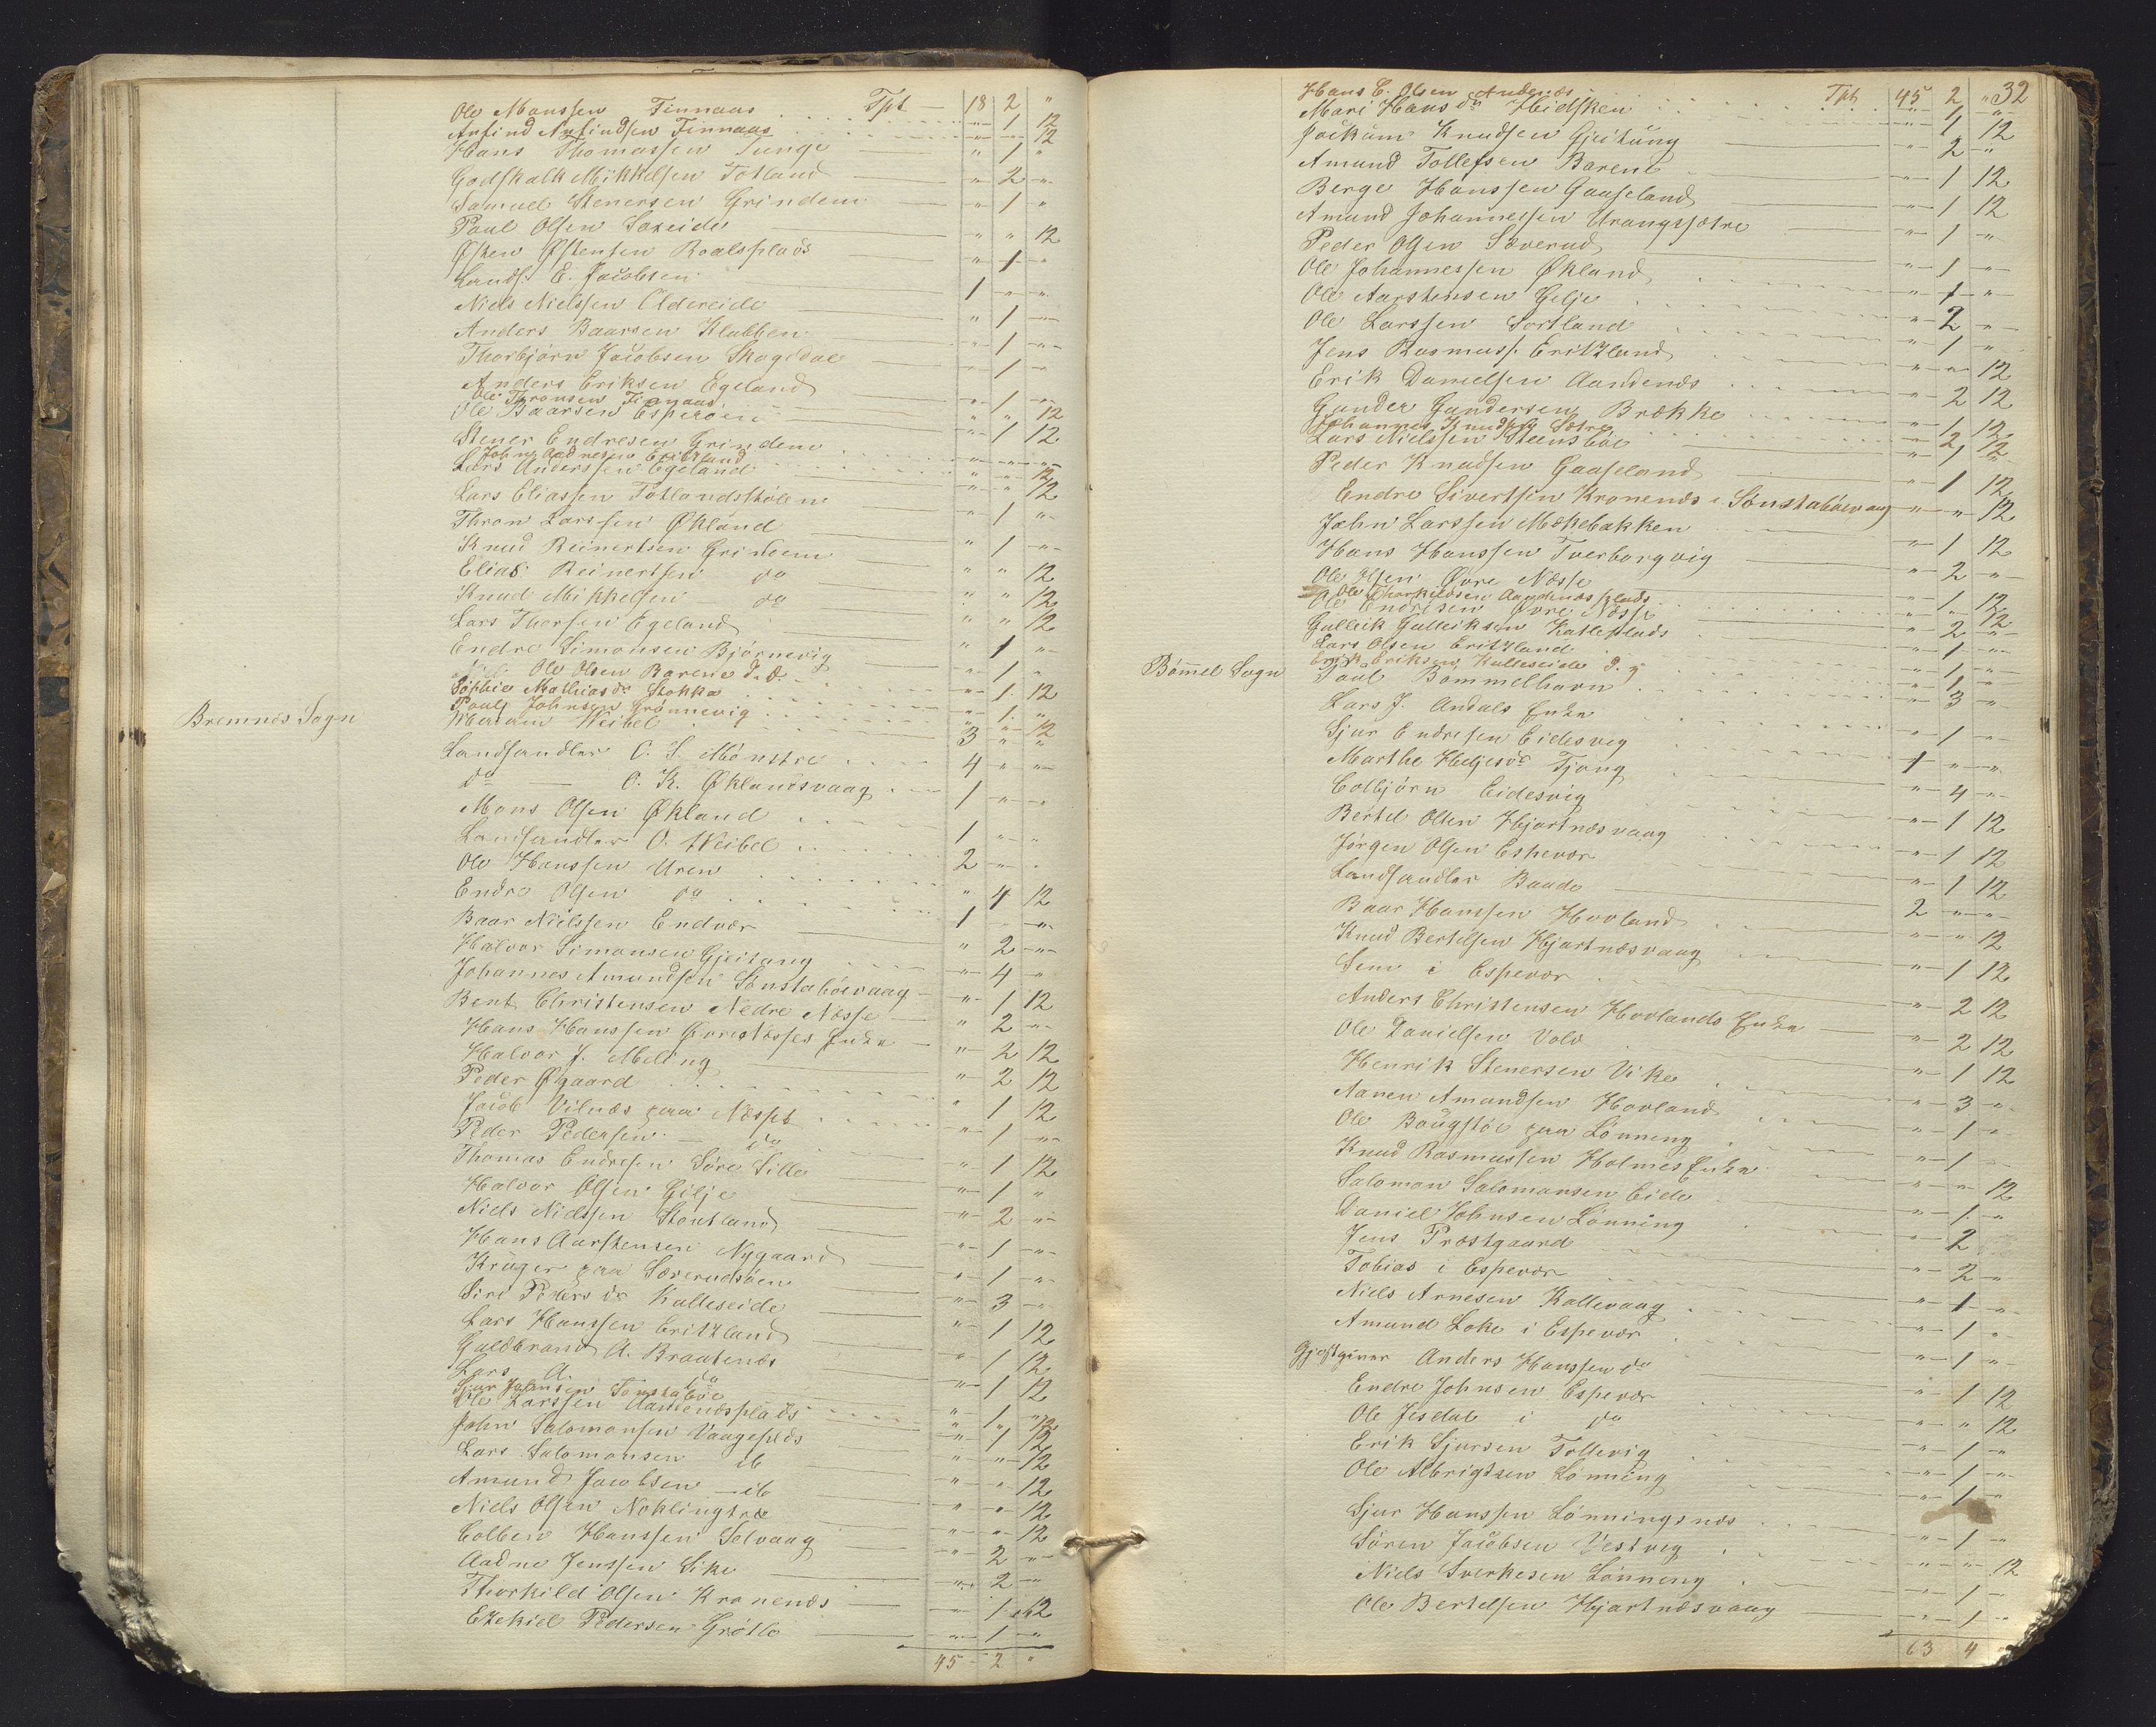 Ole Monssen Finnaas Tpt — 18 2 "
Anfind Anfindsen Finnaas " 1 12
Hans Thomassen Tunge " " 12
Godskalk Mikkelsen Totland " 1 "
Samuel Stenersen Grindem " 2 "
Paul Olsen Sakseide " 1 "
Østen Østensen Roalsplads " " 12
Landh. E. Jacobsen " 1 "
Niels Nielsen Oldereide 1 " "
Anders Baarsen Klubben " 1 "
Thorbjørn Jacobsen Skogedal " 1 "
Anders Eriksen Egeland " 1 "
Ole Thronsen Finnaas " 1 "
Ole Baarsen Esperøen " " 12
Stener Endresen Grindem " 1 12
John Andresen Eritzland " " "
Lars Anderssen Egeland " " 12
Lars Eliassen Totlandstølen " " 12
Thron Larssen Økland " 1 "
Knud Reinertsen Grindem " 1 "
Elias Reinertsen do " " 12
Knud Mikkelsen do " " 12
Lars Thorsen Egeland " " 12
Endre Simonsen Bjørnevig " 1 "
Ole Olsen Barene d. æ. " 1 "
Sophie Mathiasdr Stokka " 1 12
Poul Johnsen Grønnevig " 1 "
Bremnes Sogn
Meidel " " 12
Landhandler O. S. Mønstre 3 " "
do — O. K. Øklandsvaag 4 " "
Mons Olsen Økland 1 " "
Landhandler O. Weibel 1 " "
Ole Hanssen Uren 2 " "
Endre Olsen do " 4 12
Baar Nielssen Endvær 1 " "
Halvor Simonsen Gjeitung " 2 "
Johannes Amundsen Sønstabøevaag " 4 "
Bent Christensen Nedre Næsse " 1 12
Hans Hanssen Øvre Næsses Enke " 2 "
Halvor J. Meling " 2 12
Peder Øgaard " 2 12
Jacob Vilnæs paa Næsse " 1 12
Peder Pedersen — do " 1 "
Thomas Endresen Søre Lille " 1 12
Halvor Olsen Gilje " 1 "
Niels Nielssen Stoutland " 2 "
Hans Aarstensen Nygaard " 1 "
Krüger paa Sæverudsøen " 1 "
Siri Pedersdr Kulleseide " 3 "
Lars Hanssen Eritzland " 1 12
Guldbrand A. Braatenes " 1 12
Lars A. do " 1 12
Sjur Johnsen Sønstabøe " 1 "
Ole Larssen Aandenesplads " " 12
John Salomonsen Vaageplds " 1 12
Lars Salomonsen ib " " 12
Amund Jacobsen ib " " 12
Niels Olsen Nøklingtræ " " 12
Colben Hanssen Selvaag " " 12
Aadne Jenssen Like " 2 "
Thorkild Olsen Kranenæs " 2 "
Ezekiel Pedersen Grøtlo " 1 12
" 1 "
45 2 "
32
Hans E. Olsen Andenæs Tpt 45 2 "
Mari Hansdr Hidsken " 1 "
Joekum Knudsen Gjeitung " 1 12
Amund Tollefsen Barene " 2 "
Berge Hanssen Gaaseland " 1 12
Amund Johannessen Urangssætre " 1 12
Peder Olsen Sæverud " 1 "
Ole Johannessen Økland " 1 "
Ole Aarstensen Gilje " 1 "
Ole Larssen Sortland " 2 "
Jens Rasmuss. Eritzland " 1 "
Erik Danielsen Aandenæs " " 12
Gunder Gundersen Brække " 2 12
Johannes Knudssen Sætre " 1 12
Lars Nielssen Steensbøe " 2 12
Peder Knudsen Gaaseland " 1 "
Endre Sivertsen Kranenæs i Sønstabøevaag " 1 12
John Larssen Mækebakken " " 12
Hans Hanssen Tverborgvig " 1 12
Ole Olsen Øvre Næsse " 2 "
Ole Thorkildsen Aandenæsplads
Ole Endresen Øvre Næsse " 1 12
Gulleik Gulleiksen Katleplads " " 12
Lars Olsen Eritzland " 2 "
Erik Eriksen Kulleseide d. y. " 1 "
Bømmel Sogn
Paul Bommelhavn " 1 "
Lars J. Andals Enke " 1 "
Sjur Endresen Eidesvig " 3 "
Marthe Heljesdr Tjong " 1 "
Colbjørn Eidesvig 1 " "
Bertel Olsen Hjartnæsvaag " 4 "
Jørgen Olsen Espevær " 1 12
Landhandler Baade " 1 12
Baar Hanssen Hovland " 1 12
Knud Bertelsen Hjartnæsvaag 2 " "
Sem i Espevær " " 12
Anders Christensen Hovlands Enke " 1 12
Ole Danielsen Vold " 2 12
Henrik Stenersen Vike " 2 12
Aanen Amundsen Hovland " 1 12
Ole Baugstøe paa Lønning " 3 "
Knud Rasmussen Holmes Enke " 1 "
Salomon Salomonsen Eide " 1 "
Daniel Johnsen Lønning " " 12
Jens Præstgaard " 1 "
Tobias i Espevær " 2
Niels Arnesen Kallevaag " 2 "
Amund Loke i Espevær " 1 "
Gjestgiver Anders Hanssen do " 1 "
Endre Johnsen Espevær " 1 "
Ole Jesdal i do " 1 12
Erik Sjursen Tollevig " " 12
Ole Albrigtsen Lønning " 1 "
Sjur Hanssen Lønningsnes " 1 "
Søren Jacobsen Vestvig " 1 "
Niels Sverkesen Lønning " " 12
Ole Bertelsen Hjartnæsvaag " 1 "
" 1 "
63 4